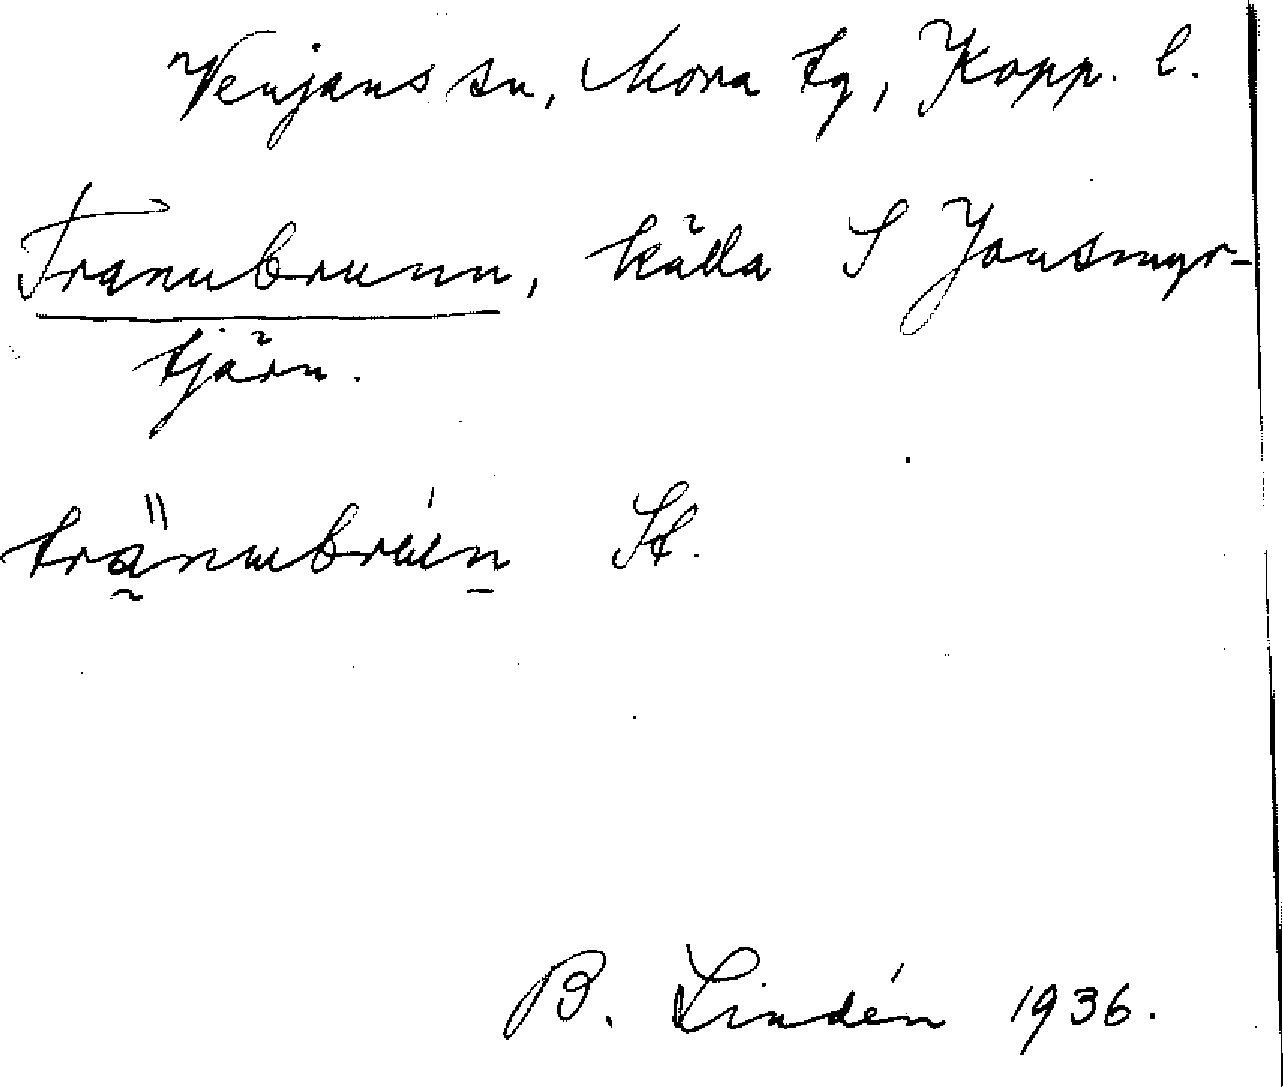 Venjans sn, Mora tg, Kopp. l.
Tranubrunn, källa S Jonsmyr-
tjärn.
B. Lindén 1936.